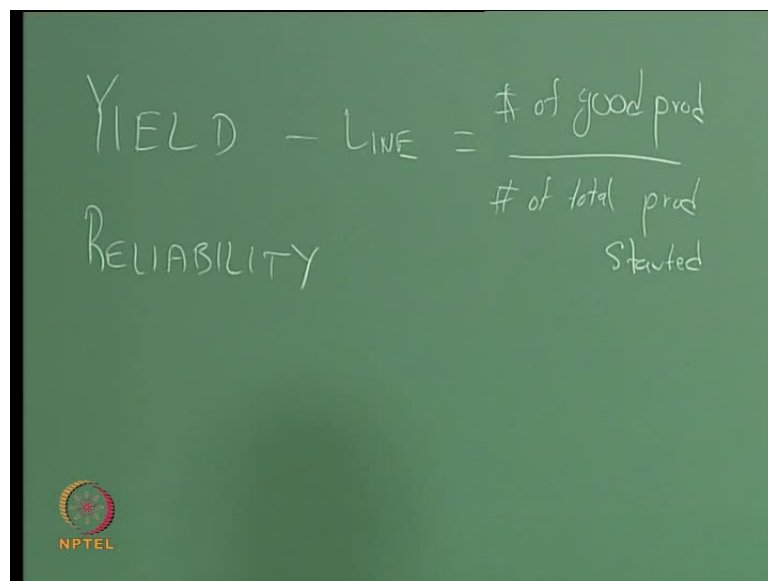 YIELD - LINE = # of good prod
# of total prod
started
RELIABILITY
NPTEL